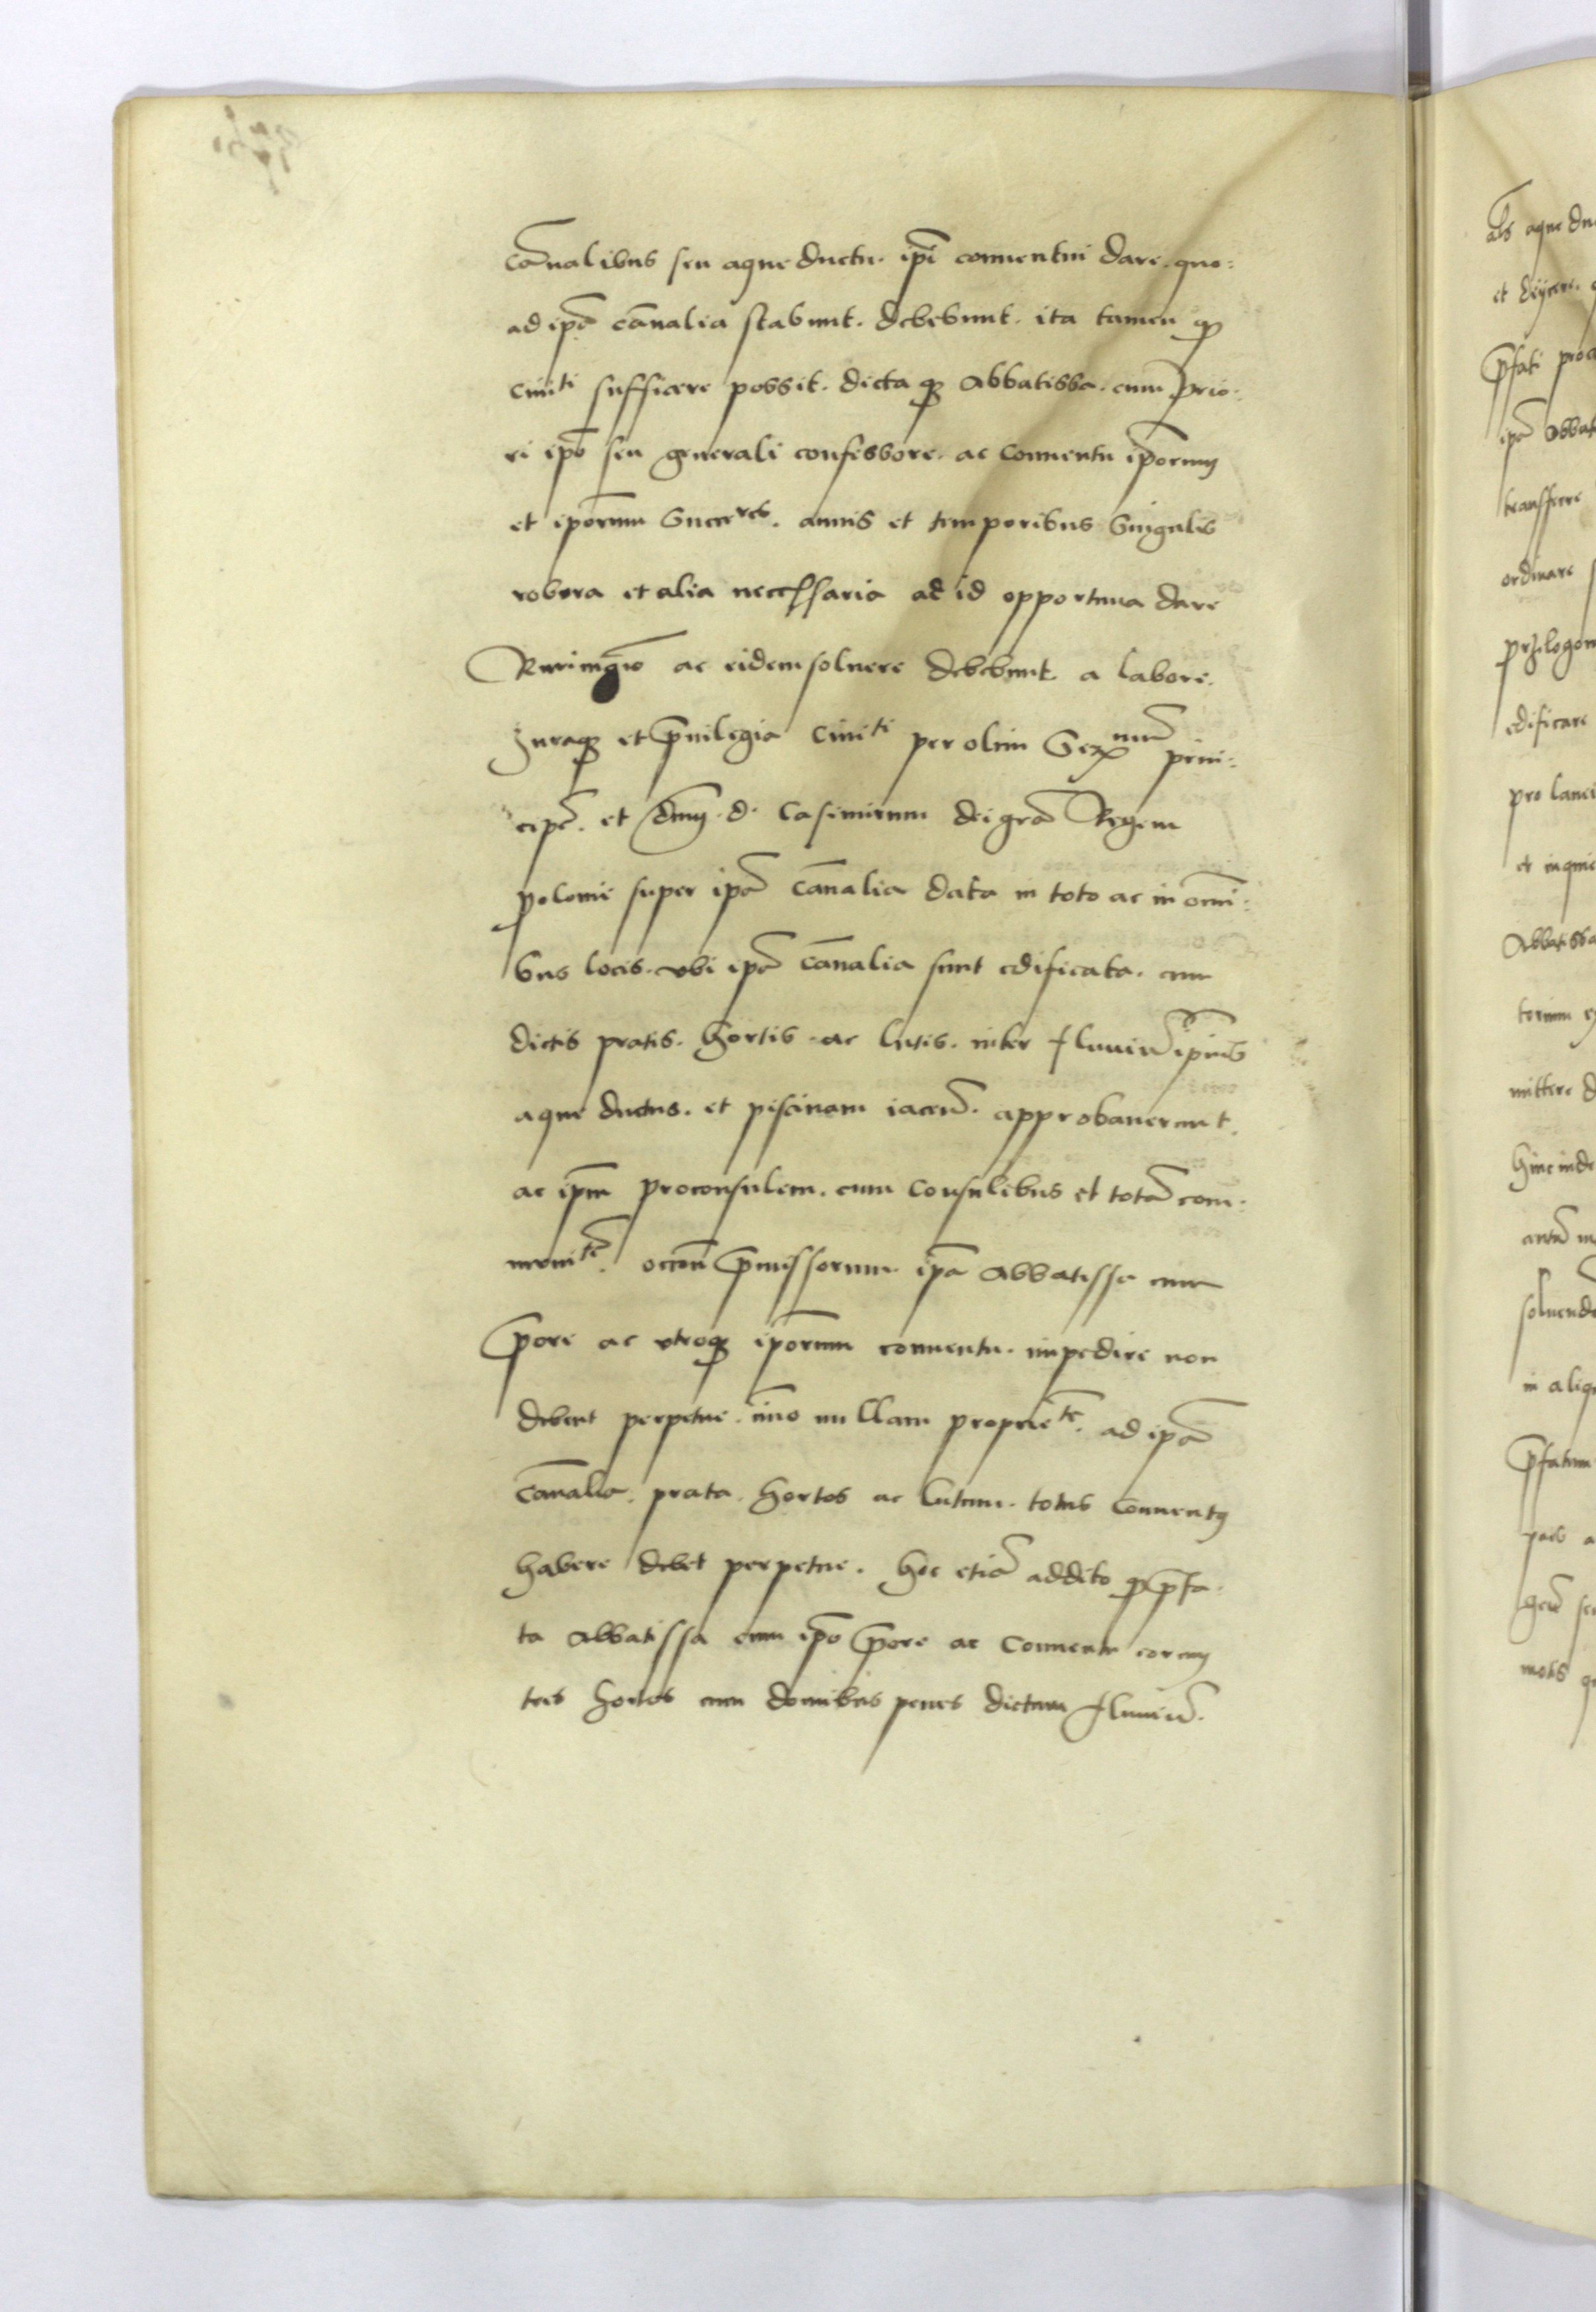 Cānalibus seu aque ductu. ip̄i conuentui dare. quo-
ad ip̄a cānalia stabunt. debebunt. ita tamen q̄
ciuiti sufficere possit. dicta q3 Abbatissa. cum Prio-
ri ip̄o seu generali confessore. ac Conuentu ip̄orum
et ip̄orum Succeres. annis et temporibus Singulis
robora et alia necessaria ad id opportuna dare
ac eidem soluere debebunt a labore.
Juraq3 et p̄uilegia Ciuiti per olim Serxmum prin-
cipē. et dn̄m. d. Casimirum dei gr̄a Regem
polonie super ip̄a Cānalia data in toto ac in om̄i-
bus locis. vbi ip̄a Cānalia sunt edificata. cum
dictis pratis. hortis. ac lutis. inter fluuiū ip̄ius
aque ductus. et piscinam iacen̄. approbauerunt.
ac ip̄m proconsulem. cum Consulibus et totā com-
munitē. occōn p̄missorum. ip̄a Abbatissa cum
p̄ore ac vtroq3 ip̄orum conuentu. impedire non
debent perpetue. im̄o nullam proprietē. ad ip̄a
Cānalia. prata. hortos ac lutum. totus Conuentus
habere debet perpetue. hoc etiā addito q̄ p̄fa-
ta Abbatissa cum ip̄o p̄ore ac Conuentu eorum
tres hortos cum domibus penes dictum fluuiū.
als aque du
et deijcere.
p̄fati proc
ip̄a Abbat
transferre
ordinare
edificare
pro
et
Abbatissa
mittere d
hinc inde
soluend
in aliq
p̄fatum